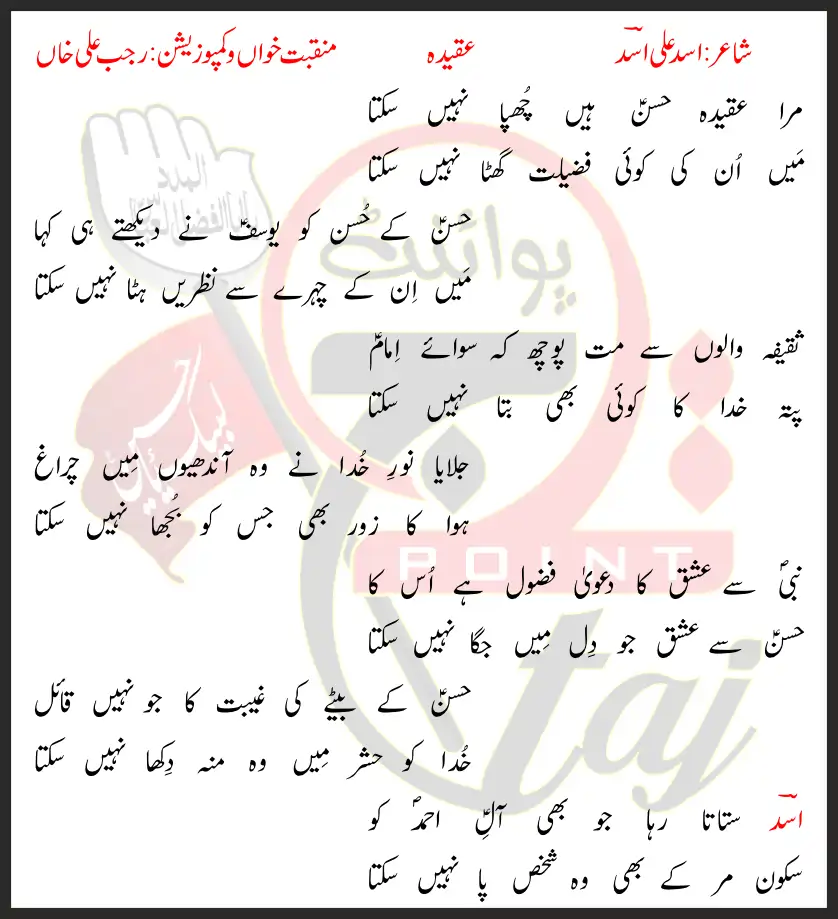 شاعر: اسد علی اسدؔ عقیدہ منقبت خواں و کمپوزیشن: رجب علی خاں
مرا عقیدہ حسنؑ ہیں چُھپا نہیں سکتا
مَیں اُن کی کوئی فضیلت گھٹا نہیں سکتا
حسنؑ کے حُسن کو یوسفؑ نے دیکھتے ہی کہا
مَیں اِن کے چہرے سے نظریں ہٹا نہیں سکتا
ثقیفہ والوں سے مت پوچھ کہ سوائے اِمامؑ
پتہ خدا کا کوئی بھی بتا نہیں سکتا
جلایا نورِ خُدا نے وہ آندھیوں مِیں چراغ
ہوا کا زور بھی جس کو بُجھا نہیں سکتا
نبیؐ سے عشق کا دعویٰ فضول ہے اُس کا
حسنؑ سے عشق جو دِل مِیں جگا نہیں سکتا
حسنؑ کے بیٹے کی غیبت کا جو نہیں قائل
خُدا کو حشر مِیں وہ منہ دِکھا نہیں سکتا
اسدؔ ستاتا رہا جو بھی آلِ احمدؐ کو
سکون مر کے بھی وہ شخص پا نہیں سکتا
المدد
پوائنٹ
تاج
POINT
taj
لبیک یا حسین